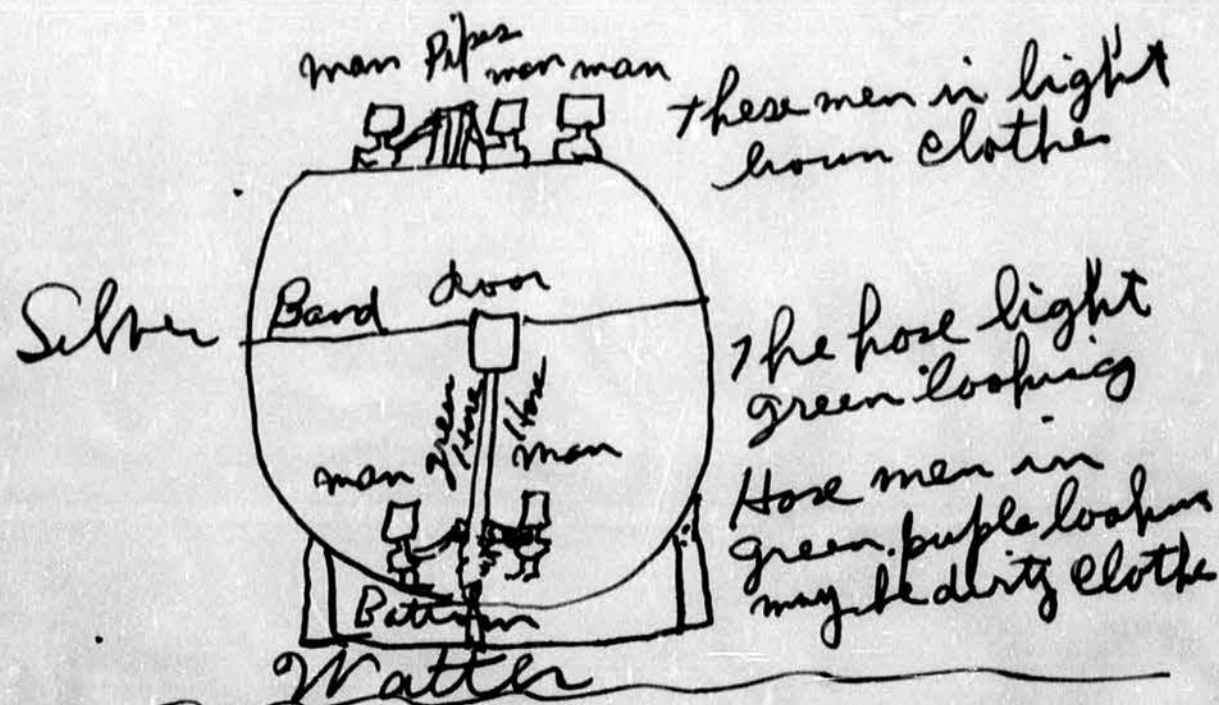 man Pipes man man
These men in light
brown clothes
Silver
Band door
The hose light
green looking
man green Hose Hose man
Hose men in
green, puple looking
may be dirty clothe
Bottom
Watter